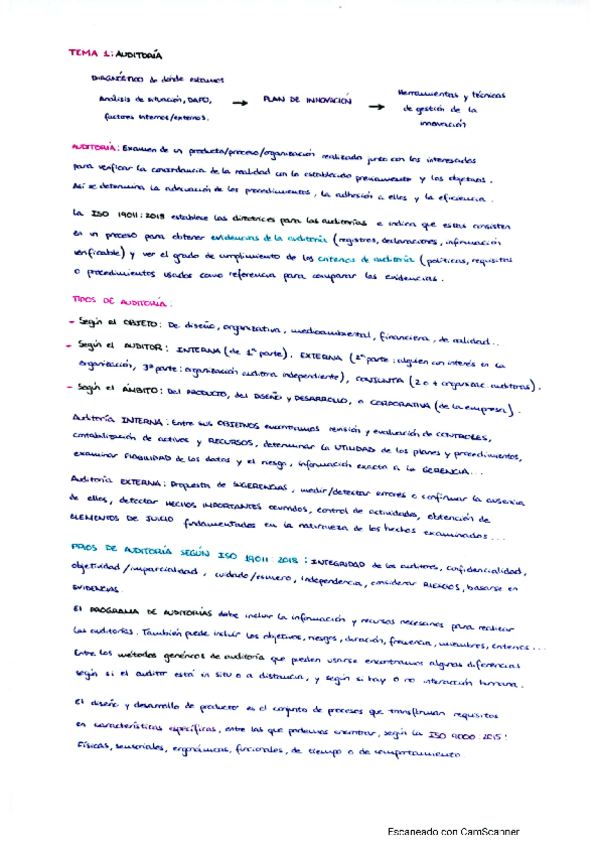 TEMA 1: AUDITORÍA
DIAGNÓSTICO de dónde estamos
Análisis de situación, DAFO,
factores internos/externos.
→ PLAN DE INNOVACIÓN →
Herramientas y técnicas
de gestión de la
innovación
AUDITORÍA: Examen de un producto/proceso/organización realizado junto con los interesados
para verificar la concordancia de la realidad con lo establecido previamente y los objetivos.
Así se determina la adecuación de los procedimientos, la adhesión a ellos y la eficiencia.
La ISO 19011:2018 establece las directrices para las auditorías e indica que estas consisten
en un proceso para obtener evidencias de la auditoría (registros, declaraciones, información
verificable) y ver el grado de cumplimiento de los criterios de auditoría (políticas, requisitos
o procedimientos usados como referencia para comparar las evidencias.
TIPOS DE AUDITORÍA:
- Según el OBJETO: De diseño, organizativa, medioambiental, financiera, de calidad...
- Según el AUDITOR: INTERNA (de 1ª parte), EXTERNA (2ª parte: alguien con interés en la
organización, 3ª parte: organización auditora independiente), CONJUNTA (2 o + organizac. auditoras).
- Según el ÁMBITO: Del PRODUCTO, del DISEÑO y DESARROLLO, o CORPORATIVA (de la empresa).
Auditoría INTERNA: Entre sus OBJETIVOS encontramos revisión y evaluación de CONTROLES,
contabilización de activos y RECURSOS, determinar la UTILIDAD de los planes y procedimientos,
examinar FIABILIDAD de los datos y el riesgo, información exacta a la GERENCIA...
Auditoría EXTERNA: Propuesta de SUGERENCIAS, medir/detectar errores o confirmar la ausencia
de ellos, detectar HECHOS IMPORTANTES ocurridos, control de actividades, obtención de
ELEMENTOS DE JUICIO fundamentados en la naturaleza de los hechos examinados...
PPIOS DE AUDITORÍA SEGÚN ISO 19011:2018: INTEGRIDAD de los auditores, confidencialidad,
objetividad/imparcialidad, cuidado/esmero, independencia, considerar RIESGOS, basarse en
EVIDENCIAS.
El PROGRAMA DE AUDITORÍAS debe incluir la información y recursos necesarios para realizar
las auditorías. También puede incluir los objetivos, riesgos, duración, frecuencia, miembros, criterios...
Entre los métodos genéricos de auditoría que pueden usarse encontramos algunas diferencias
según si el auditor está in situ o a distancia, y según si hay o no interacción humana.
El diseño y desarrollo de productor es el conjunto de procesos que transforman requisitos
en características específicas, entre las que podemos encontrar, según la ISO 9000:2015:
Físicas, sensoriales, ergonómicas, funcionales, de tiempo o de comportamiento.
Escaneado con CamScanner